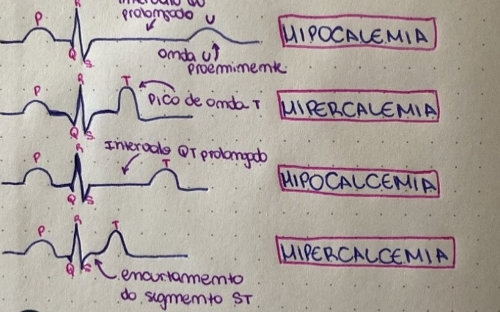 prolongado
P R U HIPOCALEMIA
Q S onda U
proeminente
P R T
pico de onda T HIPERCALEMIA
Q S
Intervalo QT prolongado
P R T HIPOCALCEMIA
Q S
P R T HIPERCALCEMIA
Q S
encurtamento
do segmento ST